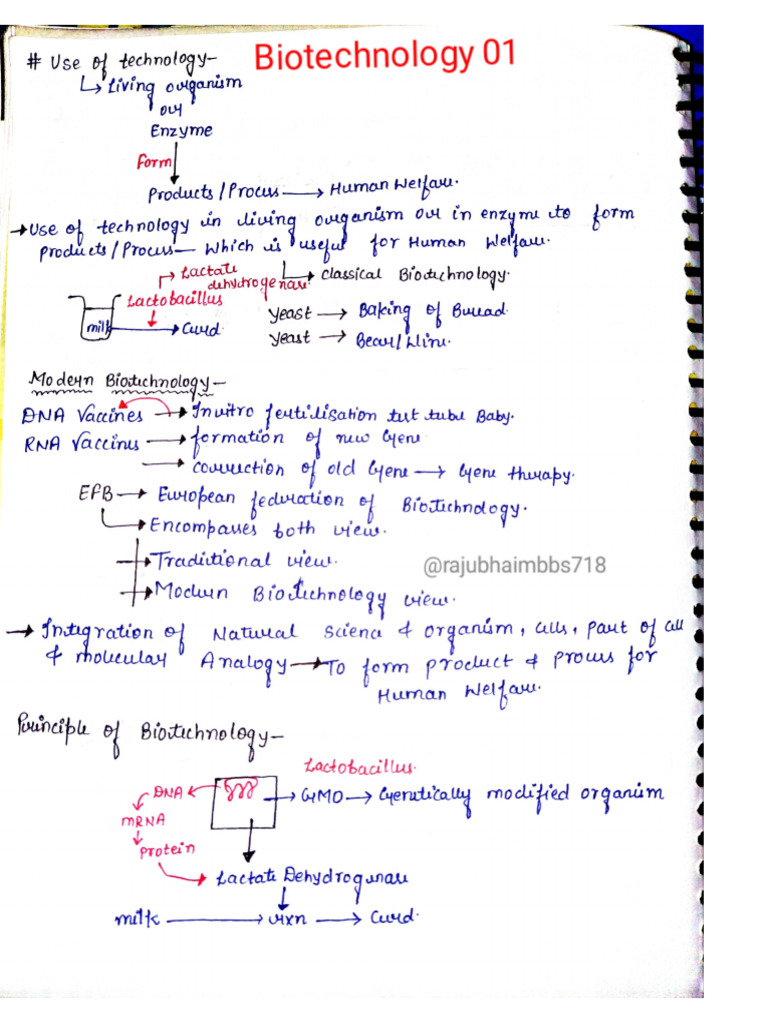 Biotechnology 01
# Use of technology-
↳ Living organism
or
Enzyme
Form
Products/Process → Human Welfare.
→ Use of technology in living organism or in enzyme to form
Products/Process — Which is useful for Human Welfare.
↳ Classical Biotechnology.
Lactate
dehydrogenase
Lactobacillus
milk → Curd.
Yeast → Baking of Bread.
Yeast → Bear/Wine.
Modern Biotechnology-
DNA Vaccines → Invitro fertilisation tut tube Baby.
RNA Vaccines → formation of new Gene
→ correction of old Gene → Gene therapy.
EFB → European federation of Biotechnology.
↳ Encompasses both view.
→ Traditional view.
→ Modern Biotechnology view.
→ Integration of Natural science & organism, cells, part of cell
& molecular Analogy → To form product & process for
Human Welfare.
@rajubhaimbbs718
Principle of Biotechnology-
Lactobacillus.
DNA
→ GMO → Genetically modified organism
mRNA
Protein
Lactate Dehydrogenase
milk → rxn → Curd.